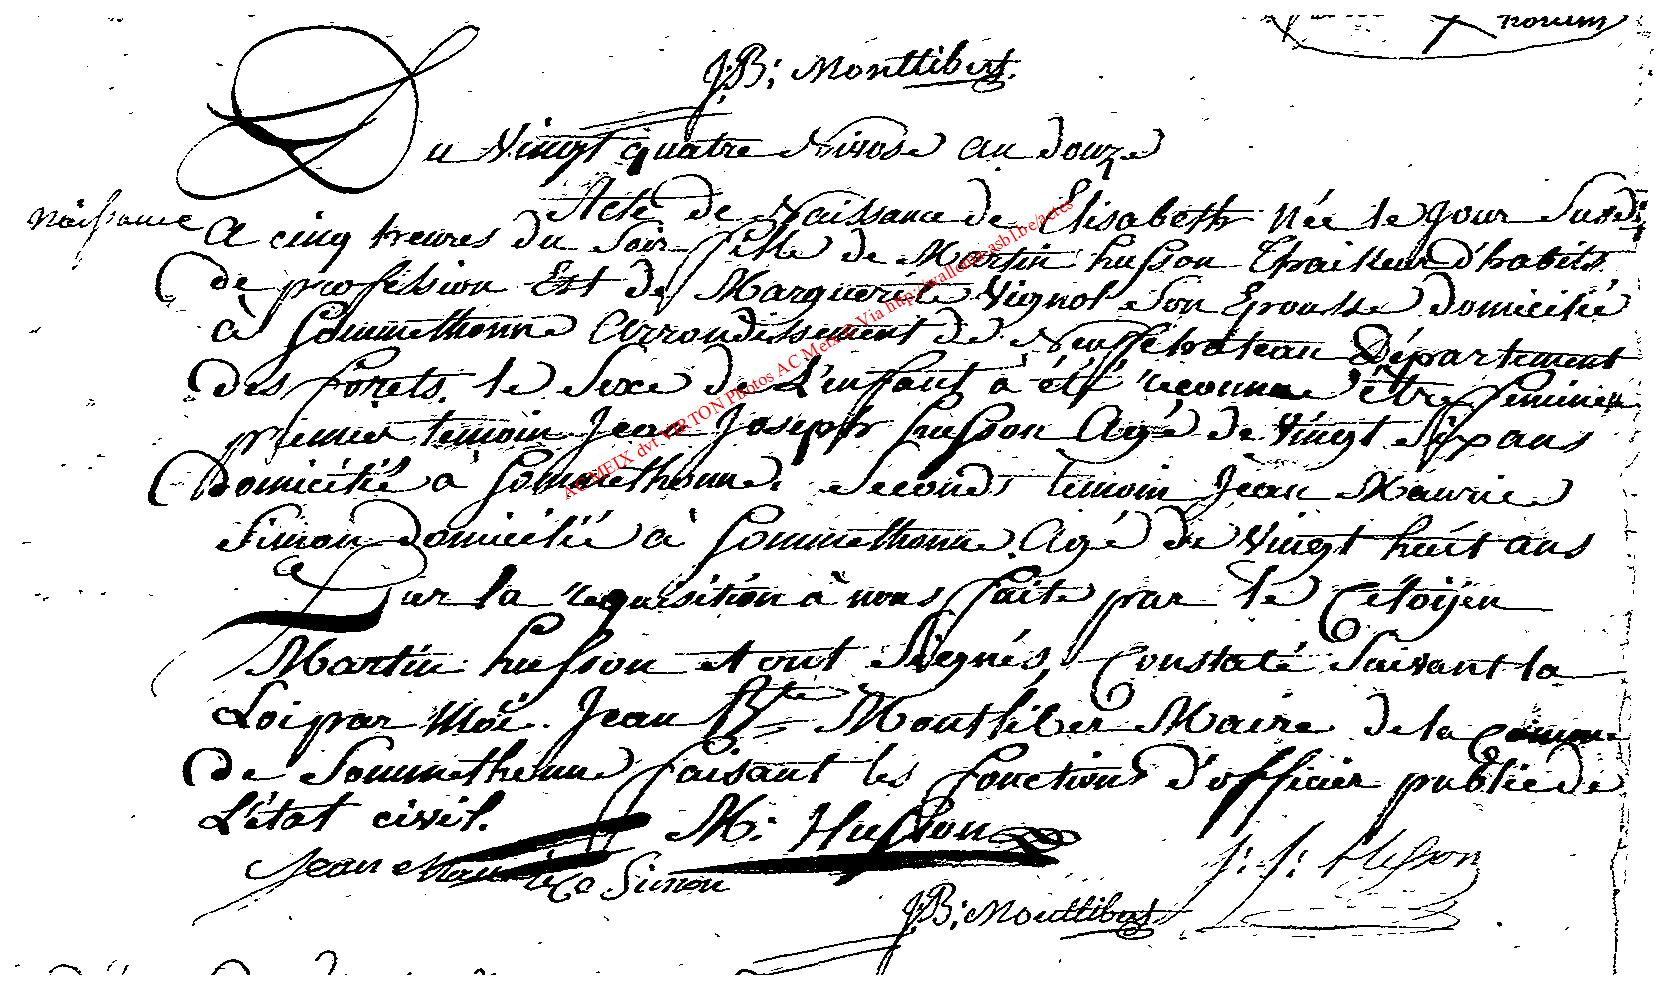 J:B: Monttibert.
Du Vingt quatre Nivose an douze
naissance
Acte de Naissance de Elisabeth Née le Jour Susdi
a cinq heures du Soir fille de Martin husson thailleur d'habits
de profession Est de Marguerite Vignol Son Epousse domicilié
à Sommethonne arrondissement de Neuffchateau Département
des forets. le Sexe de L'enfant à été reconnue être feminin
premier temoin Jean Joseph husson Agé de Vingt Six ans
domicilié à Sommethonne. Second temoin Jean Maurice
Simon domicilié à Sommethonne. Agé de Vingt huit ans
Sur la requisition à nous faite par le Citoÿen
Martin husson et ont Signés, Constaté Suivant la
Loi par Moi. Jean Bte Montliber Maire de la Comune
de Sommethonne faisant les fonctions d'officier public de
L'état civil.
M: Husson
Jean Maurice Simon
J: J: Husson
J:B: Monttibert
AC MEIX dvt VIRTON Photos AC Meix Via http://wallonia-asbl.be/actes